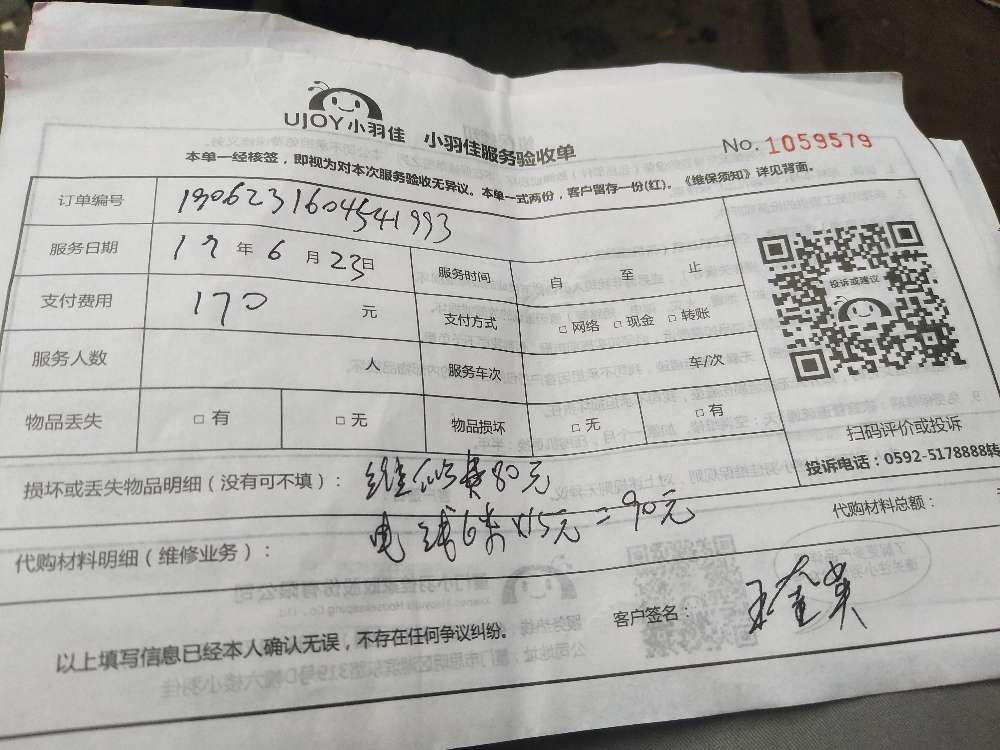 UJOY小羽佳 小羽佳服务验收单
No. 1059579
本单一经核签，即视为对本次服务验收无异议。本单一式两份，客户留存一份(红)。《维保须知》详见背面。
订单编号 190623160454 1993
服务日期 19 年 6 月 23 日 服务时间 自 至 止
支付费用 170 元 支付方式 □ 网络 □ 现金 □ 转账
服务人数 人 服务车次 车/次
物品丢失 □ 有 □ 无 物品损坏 □ 无 □ 有
投诉或建议
扫码评价或投诉
投诉电话：0592-5178888转
损坏或丢失物品明细（没有可不填）： 维修费80元
代购材料明细（维修业务）： 电线6米×15元=90元
代购材料总额：
客户签名：
以上填写信息已经本人确认无误，不存在任何争议纠纷。